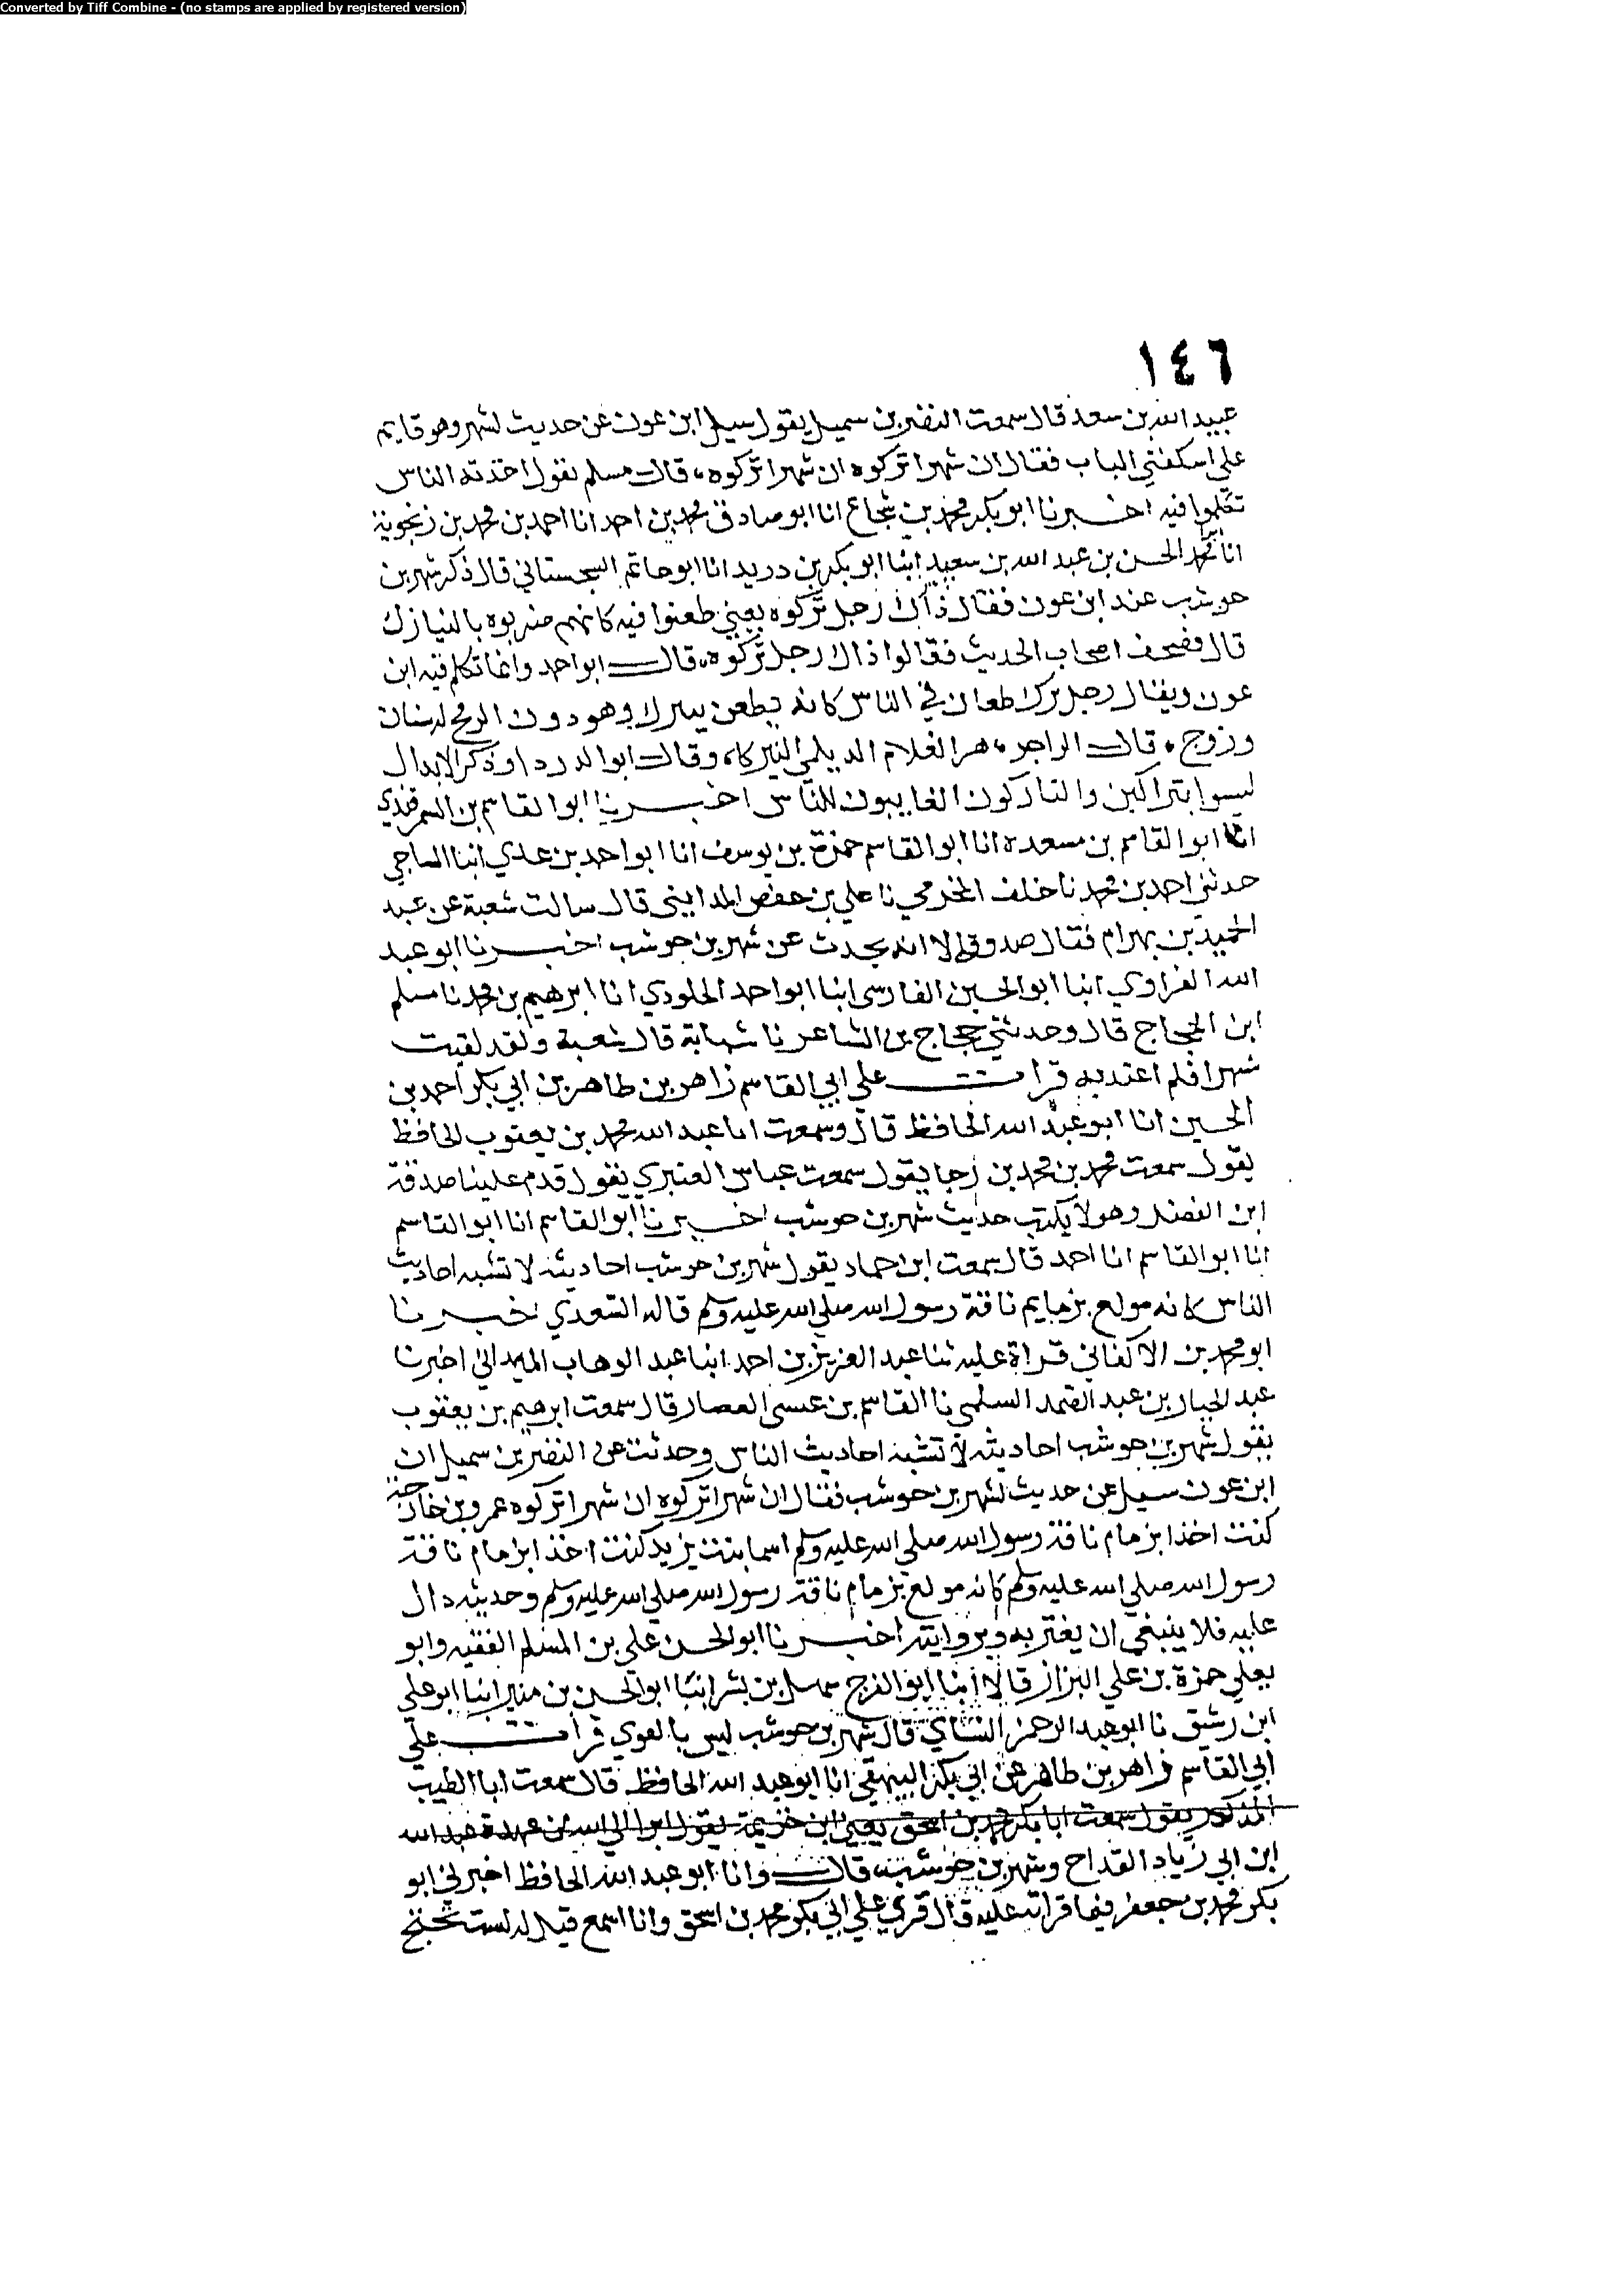 Converted by Tiff Combine - (no stamps are applied by registered version)
١٤٦
عبيد الله بن سعد قال سمعت النضر بن سميل يقول سيل ابن عون عن حديث لشهر وهو قايم
على اسكفتي الباب فقال ان شهرا تركوه ان شهرا تركوه، قال مسلم يقول اخذته الناس
تكلموا فيه اخبرنا ابو بكر محمد بن شجاع انا ابو صادق محمد بن احمد انا احمد بن محمد بن زنجوية
انا الحسن بن عبد الله بن سعيد ابنا ابو بكر بن دريد انا ابو حاتم السجستاني قال ذكر شهر بن
حوشب عند ابن عون فقال ذاك رجل تركوه يعني طعنوا فيه كانهم ضربوه بالنيازك
قال فصحف اصحاب الحديث فقالوا ذاك رجل تركوه، قال ابو احمد وانما تكلم فيه ابن
عون ويقال رجل برك طعان في الناس كانه يطعن وهو دون الرمح له سنان
وزوج، قال الراجز، هز الغلام الديلمي النيركا، وقال ابو الدردا وذكر الابدال
ليسوا بتراكين والتاركون العايبون للناس اخبرنا ابو القاسم بن السمرقندي
انا ابو القاسم بن مسعدة انا ابو القاسم حمزة بن يوسف انا ابو احمد بن عدي انبنا الساجي
حدثني احمد بن محمد نا خلف المخرمي نا علي بن حفص المدايني قال سالت شعبة عن عبد
الحميد بن بهرام فقال صدوق الا انه يحدث عن شهر بن حوشب اخبرنا ابو عبد
الله الفراوي ابنا ابو الحسين الفارسي ابنا ابو احمد الجلودي انا ابرهيم بن محمد نا مسلم
ابن الحجاج قال وحدثني حجاج بن الشاعر نا شبابة قال شعبة ولقد لقيت
شهرا فلم اعتد به قرات على ابي القاسم زاهر بن طاهر بن ابي بكر احمد بن
الحسين انا ابو عبد الله الحافظ قال وسمعت ابا عبد الله محمد بن يعقوب الحافظ
يقول سمعت محمد بن محمد بن رجا يقول سمعت عباس العنبري يقول قدم علينا صدقة
ابن الفضل وهو لا يكتب حديث شهر بن حوشب اخبرنا ابو القاسم انا ابو القاسم
انا ابو القاسم انا احمد قال سمعت ابن حماد يقول شهر بن حوشب احاديثه لا تشبه احاديث
الناس كانه مولع بزمام ناقة رسول الله صلى الله عليه وسلم قاله السعدي اخبرنا
ابو محمد بن الاكفاني قراة عليه ثنا عبد العزيز بن احمد ابنا عبد الوهاب الميداني اخبرنا
عبد الجبار بن عبد الصمد السلمي نا القاسم بن عيسى العصار قال سمعت ابرهيم بن يعقوب
يقول شهر بن حوشب احاديثه لا تشبه احاديث الناس وحدثت عن النضر بن سميل ان
ابن عون سيل عن حديث لشهر بن حوشب فقال ان شهرا تركوه ان شهرا تركوه عمرو بن خارجة
كنت اخذا بزمام ناقة رسول الله صلى الله عليه وسلم اسما بنت يزيد كنت اخذا بزمام ناقة
رسول الله صلى الله عليه وسلم كانه مولع بزمام ناقة رسول الله صلى الله عليه وسلم وحديثه دال
عليه فلا ينبغي ان يغتر به وبروايته اخبرنا ابو الحسن علي بن المسلم الفقيه وابو
يعلي حمزة بن علي البزاز قالا انبنا ابو الفرج سهل بن بشر انبنا ابو الحسن بن منير انبنا ابو علي
ابن رشيق نا ابو عبد الرحمن النساي قال شهر بن حوشب ليس بالقوي قرات على
ابي القاسم زاهر بن طاهر عن ابي بكر البيهقي انا ابو عبد الله الحافظ قال سمعت ابا الطيب
المذكور يقول سمعت ابا بكر محمد بن اسحق يعني ابن خزيمة يقول ابرا الى الله من عهدة عبد الله
ابن ابي زياد القداح وشهر بن حوشب، قال وانا ابو عبد الله الحافظ اخبرني ابو
بكر محمد بن جعفر فيما قرات عليه قال قري على ابي بكر محمد بن اسحق وانا اسمع قيل له لست تحتج